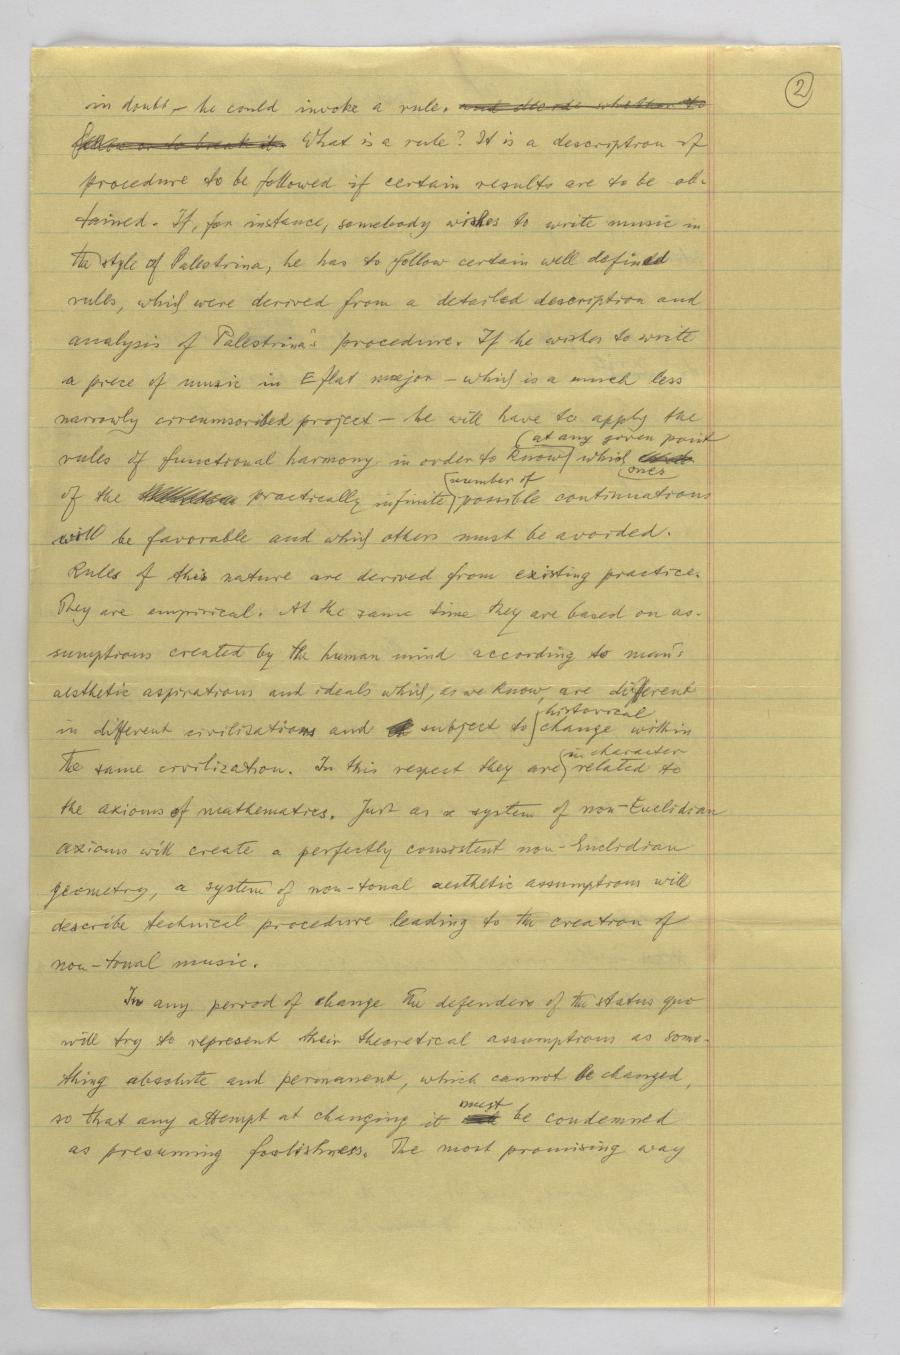 2
in doubt – he could invoke a rule. and decide whether to
follow or to break it. What is a rule? It is a description of
procedure to be followed if certain results are to be ob-
tained. If, for instance, somebody wishes to write music in
the style of Palestrina, he has to follow certain well defined
rules, which were derived from a detailed description and
analysis of Palestrina's procedure. If he wishes to write
a piece of music in E flat major – which is a much less
narrowly circumscribed project – he will have to apply the
at any given point
rules of functional harmony in order to know which
ones
number of
of the practically infinite possible continuations
will be favorable and which others must be avoided.
Rules of this nature are derived from existing practice.
They are empirical. At the same time they are based on as-
sumptions created by the human mind according to man's
aesthetic aspirations and ideals which, as we know, are different
historical
in different civilizations and subject to change within
in character
the same civilization. In this respect they are related to
the axioms of mathematics. Just as a system of non-Euclidian
axioms will create a perfectly consistent non-Euclidian
geometry, a system of non-tonal aesthetic assumptions will
describe technical procedure leading to the creation of
non-tonal music.
In any period of change the defenders of the status quo
will try to represent their theoretical assumptions as some-
thing absolute and permanent, which cannot be changed,
must
so that any attempt at changing it be condemned
as presuming foolishness. The most promising way